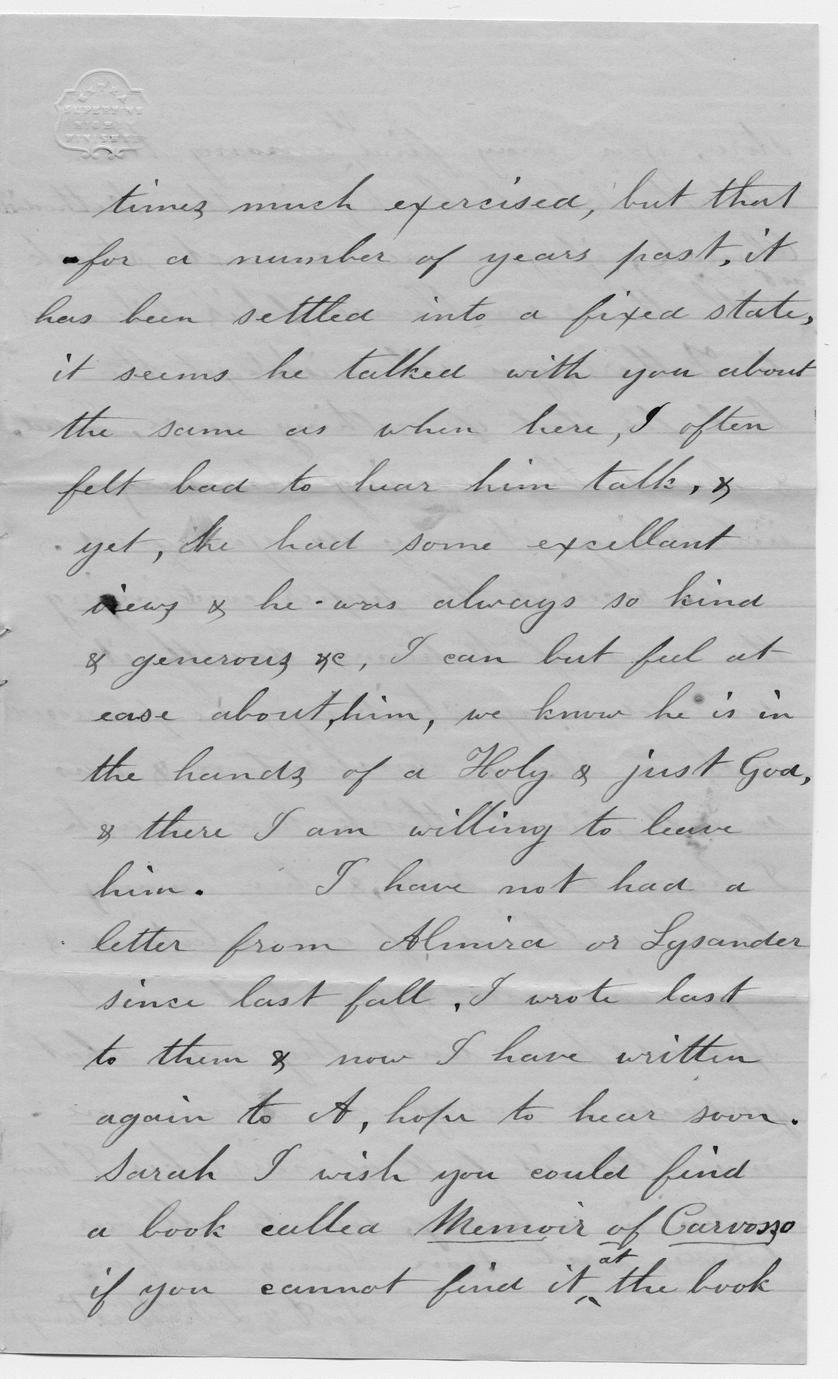 EXTRA
SUPERFINE
times much exercised, but that
for a number of years past, it
has been settled into a fixed state,
it seems he talked with you about
the same as when here, I often
felt bad to hear him talk, &
yet, he had some excellant
views & he was always so kind
& generous &c, I can but feel at
ease about him, we know he is in
the hands of a Holy & just God,
& there I am willing to leave
him. I have not had a
letter from Almira or Lysander
since last fall, I wrote last
to them & now I have written
again to A, hope to hear soon.
Sarah I wish you could find
a book called Memoir of Carvosso
if you cannot find it at the book